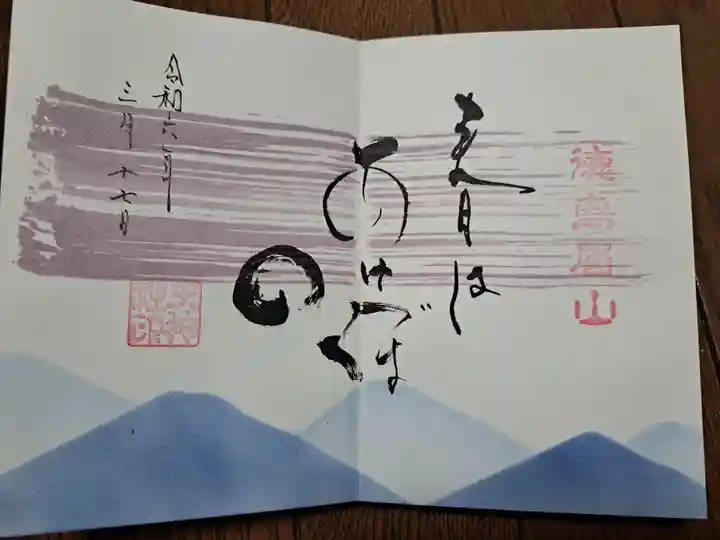 徳島眉山
春は
あけぼ
の
令和六年
三月十七日